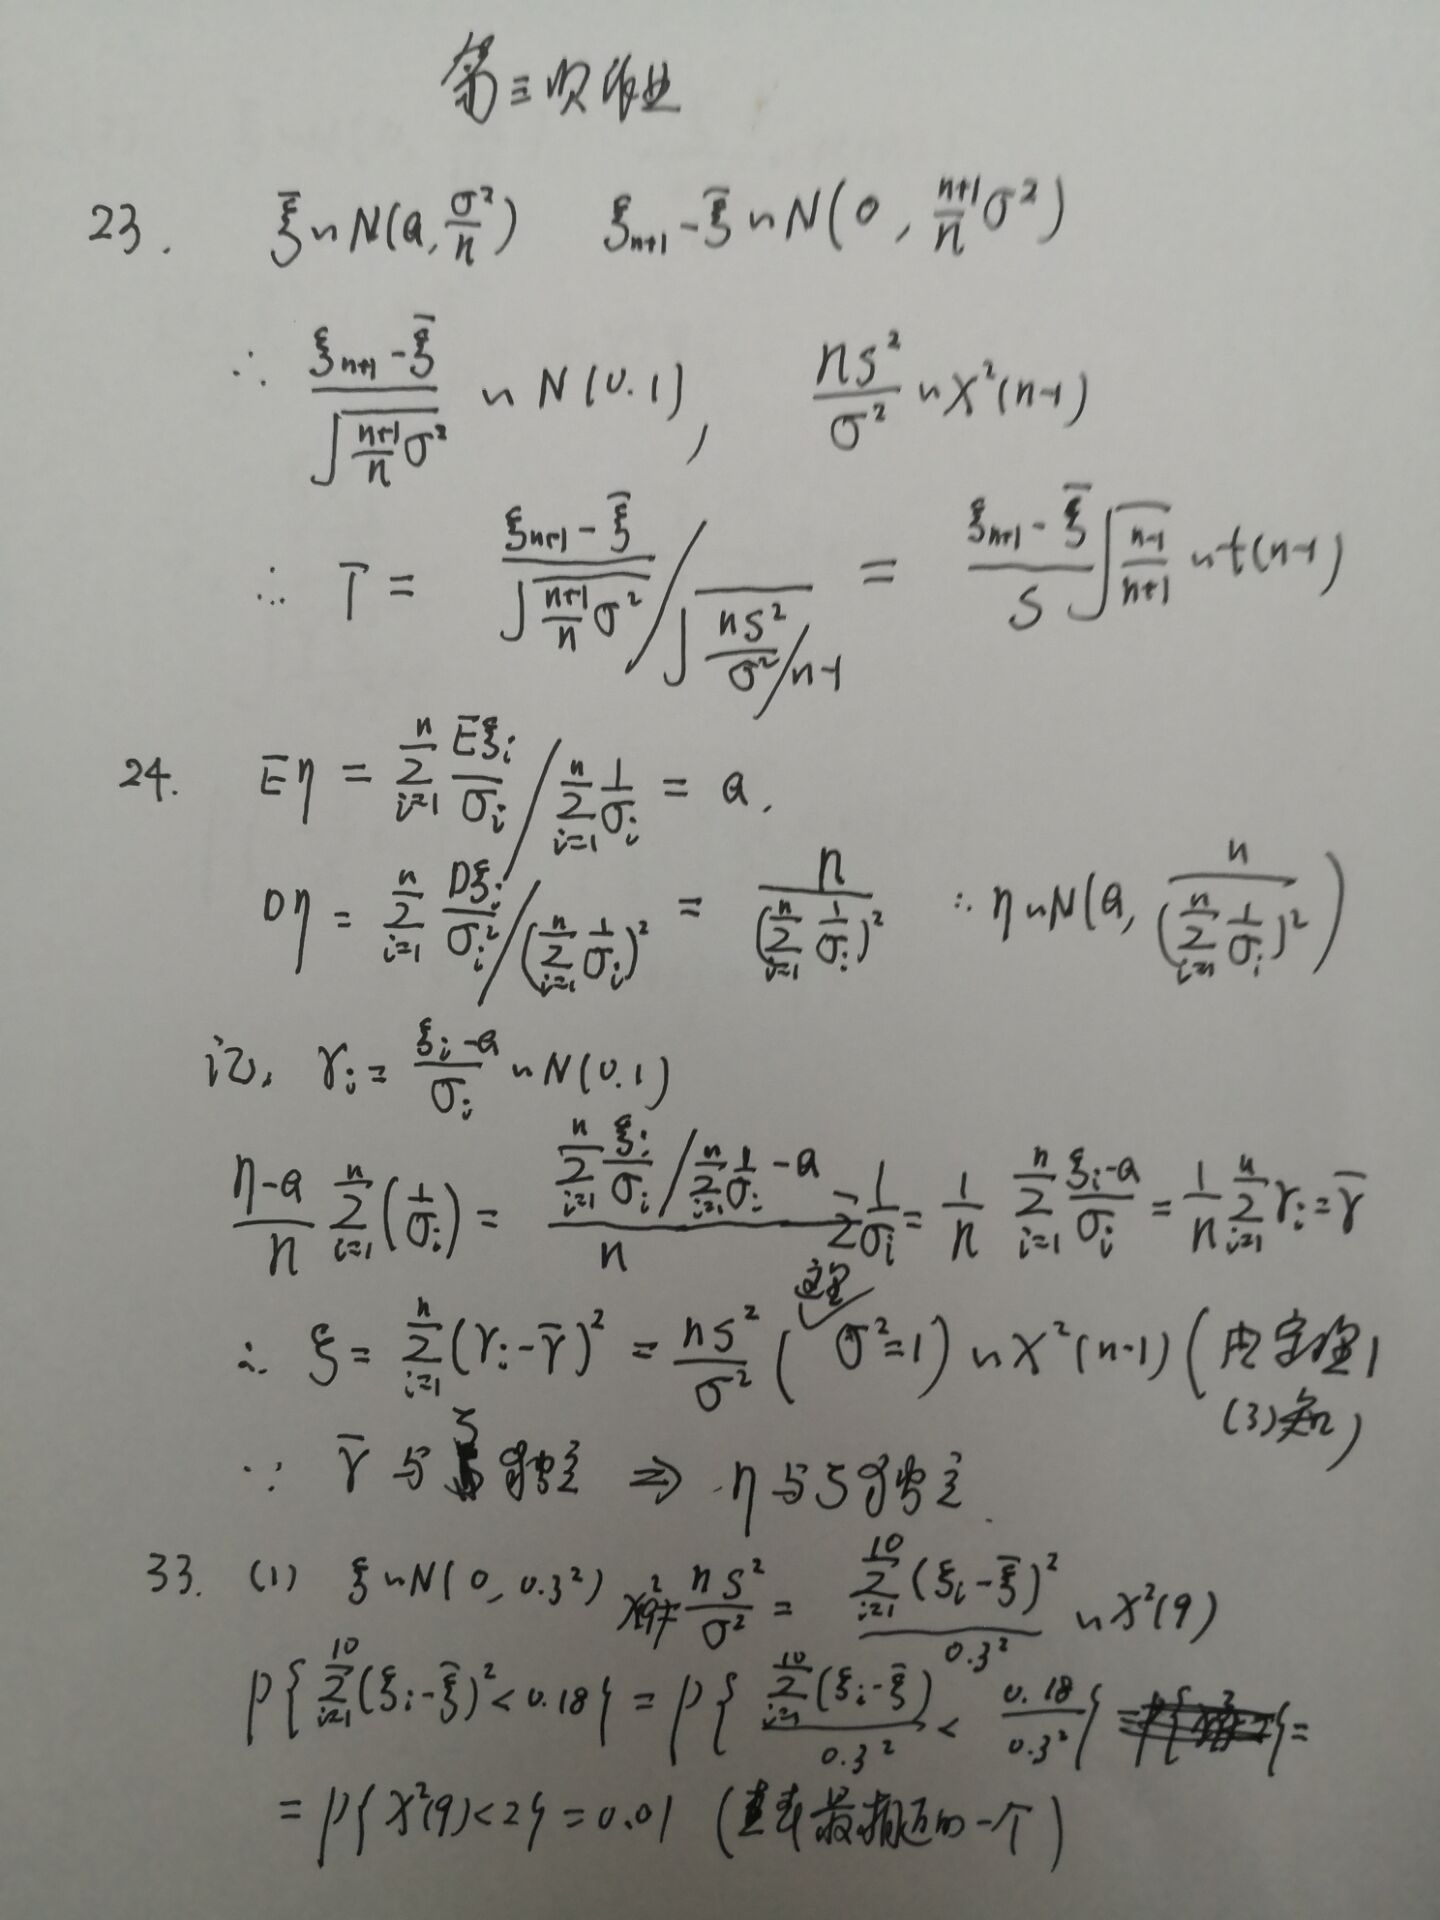 第三次作业
23. ξ̄ ~ N(a, σ²/n) ξₙ₊₁ - ξ̄ ~ N(0, (n+1)/n σ²)
∴ (ξₙ₊₁ - ξ̄)/√((n+1)/n σ²) ~ N(0.1), nS²/σ² ~ χ²(n-1)
∴ T = (ξₙ₊₁ - ξ̄)/√((n+1)/n σ²) / √(nS²/σ² / n-1) = (ξₙ₊₁ - ξ̄)/S √((n-1)/(n+1)) ~ t(n-1)
24. Eη = Σᵢ₌₁ⁿ Eξᵢ/σᵢ / Σᵢ₌₁ⁿ 1/σᵢ = a.
Dη = Σᵢ₌₁ⁿ Dξᵢ/σᵢ² / (Σᵢ₌₁ⁿ 1/σᵢ)² = n/(Σᵢ₌₁ⁿ 1/σᵢ)² ∴ η ~ N(a, n/(Σᵢ₌₁ⁿ 1/σᵢ)²)
记, γᵢ = (ξᵢ - a)/σᵢ ~ N(0.1)
(η-a)/n Σᵢ₌₁ⁿ (1/σᵢ) = (Σᵢ₌₁ⁿ ξᵢ/σᵢ / Σᵢ₌₁ⁿ 1/σᵢ - a)/n Σ 1/σᵢ = 1/n Σᵢ₌₁ⁿ (ξᵢ-a)/σᵢ = 1/n Σᵢ₌₁ⁿ γᵢ = γ̄
∴ ξ = Σᵢ₌₁ⁿ (γᵢ - γ̄)² = nS²/σ² (这里 σ²=1) ~ χ²(n-1) (由定理1
(3)知)
∵ γ̄ 与 ξ 独立 ⇒ η 与 ξ 独立.
33. (1) ξ ~ N(0, 0.3²) nS²/σ² = Σᵢ₌₁¹⁰ (ξᵢ - ξ̄)²/0.3² ~ χ²(9)
P{Σᵢ₌₁¹⁰ (ξᵢ - ξ̄)² < 0.18} = P{Σᵢ₌₁¹⁰ (ξᵢ - ξ̄)/0.3² < 0.18/0.3²} =
= P{χ²(9) < 2} = 0.01 (查表最接近的一个)